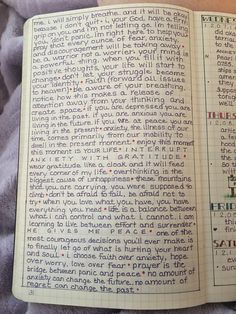 me. i will simply breathe. and it will be okay
because i don't quit • i, your God, have a firm
grip on you and i'm not letting go. I'm telling
you, don't panic. I'm right here to help you •
pray that every ounce of fear, anxiety,
and discouragement will be taking away
be a warrior not a worrier • your mind is
a powerful thing. when you fill it with
positive thoughts, your life will start to
change • don't let your struggle become
your identity • Faith (forward all issues
to heaven) • be aware of your breathing.
notice how this makes a release of
attention away from your thinking and
create space • if you are depressed you are
living in the past. if you are anxious you are
living in the future. if you are at peace, you are
living in the present • anxiety, the illness of our
time, comes primarily from our inability to
dwell in the present moment • enjoy this moment
this moment is your life • INTERRUPT
ANXIETY WITH GRATITUDE •
wear gratitude like a cloak and it will feed
every corner of my life • overthinking is the
biggest cause of unhappiness • these mountains
that you are carrying, you were supposed to
climb • don't be afraid to fail, be afraid not to
try • when you love what you have, you have
everything you need • life is a balance between
what i can control and what i cannot. i am
learning to live between effort and surrender •
HE GIVES ME PEACE • one of the
most courageous decisions you'll ever make is
to finally let go of what is hurting your heart
and soul • i choose faith over anxiety, hope
over worry, love over fear • prayer is the
bridge between panic and peace • no amount of
anxiety can change the future. no amount of
regret can change the past. •
WEDNES
THURS
FRID
SAT